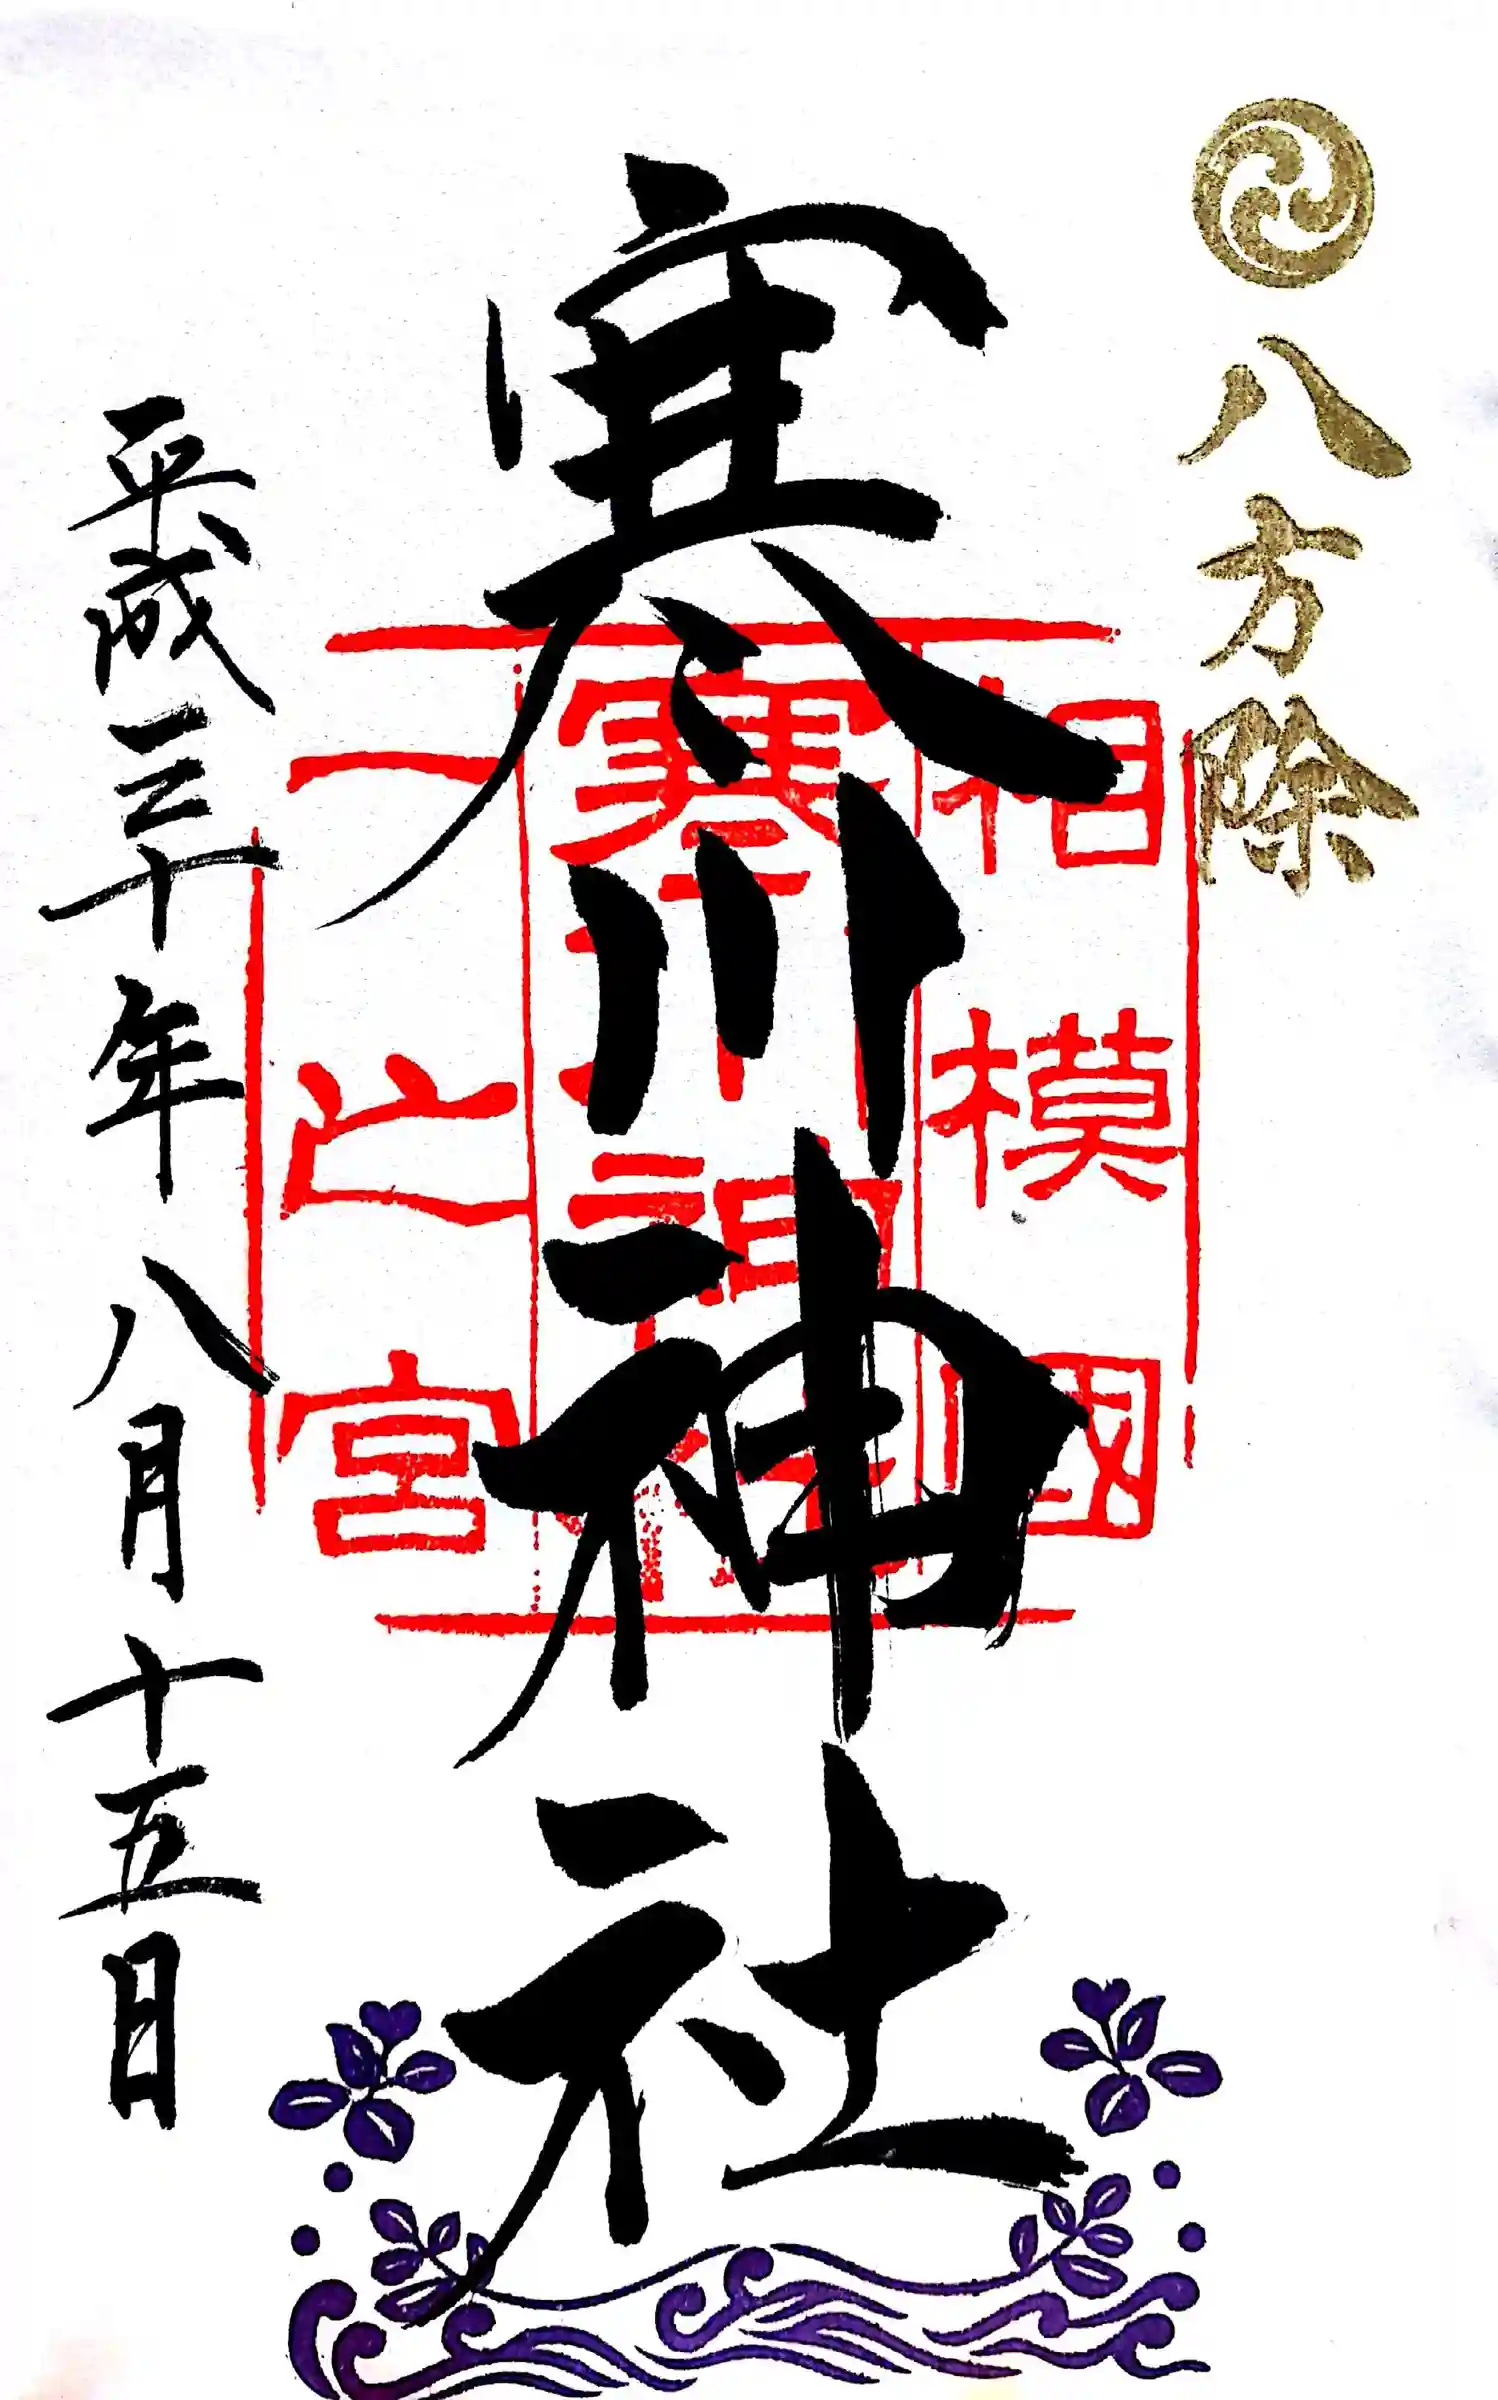 八方除
寒川神社
相模國
寒川神社
一之宮
平成三十年八月十五日